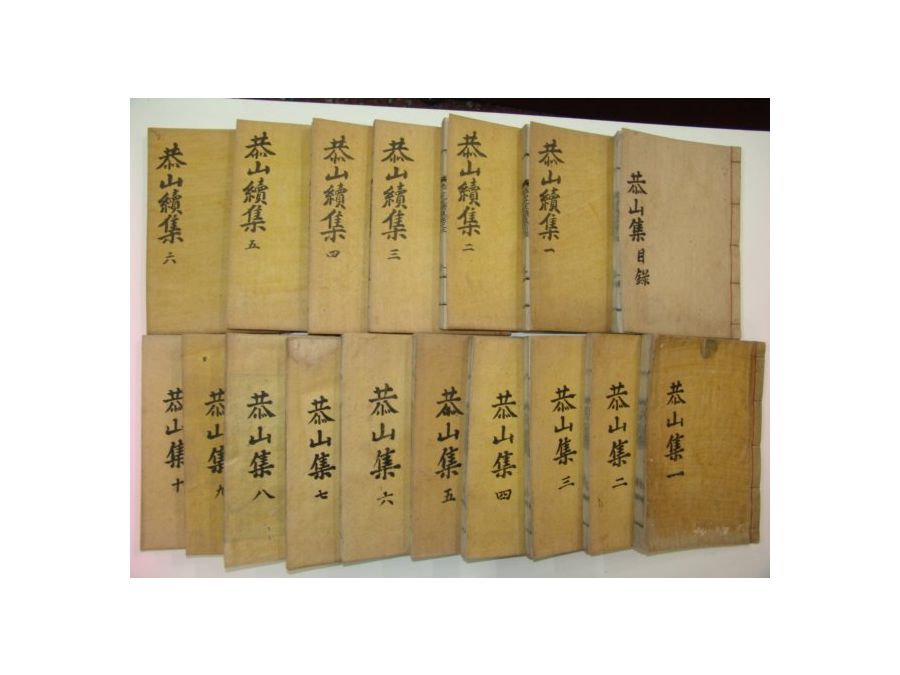 恭山集目錄
恭山續集一
恭山續集二
恭山續集三
恭山續集四
恭山續集五
恭山續集六
恭山集一
恭山集二
恭山集三
恭山集四
恭山集五
恭山集六
恭山集七
恭山集八
恭山集九
恭山集十